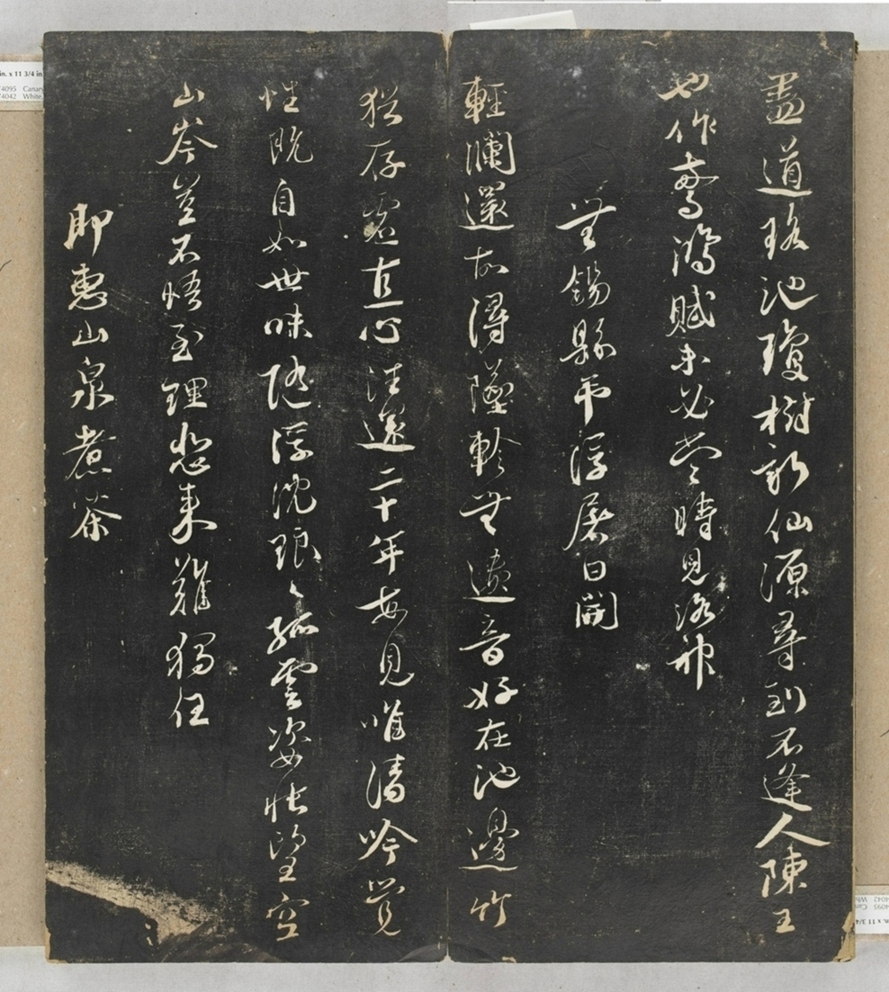 盡道瑤池瓊樹新仙源尋到不逢人陳王
也作驚鴻賦未必當時見洛神
無錫縣弔浮屠日開
輕瀾還故潯墜軫無遺音好在池邊竹
猶存虛直心往還二十年每見唯清吟覺
性既自如世味隨浮沈琅〻孤雲姿悵望空
山岑豈不悟至理悲來難獨任
即惠山泉煮茶
in. x 11 3/4 in
4095 Canary
4042 White